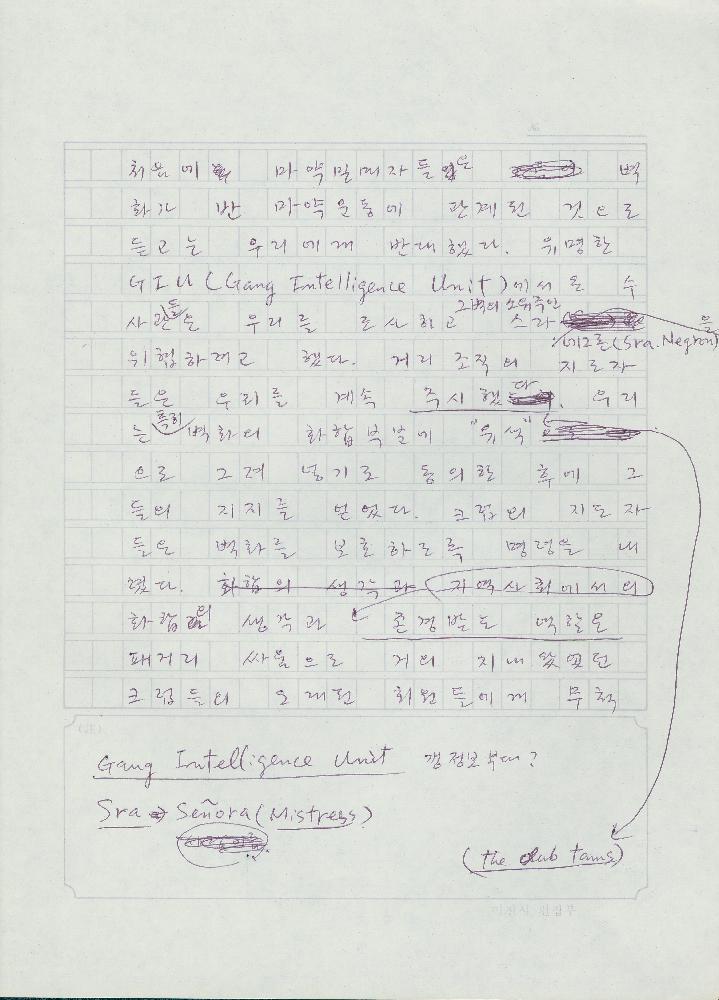 No
처음에 마약밀매자들은 벽
화가 반 마약운동에 관계된 것으로
듣고는 우리에게 반대했다. 위명한
GIU (Gang Intelligence Unit)에서 온 수
사관들은 우리를 조사하고 그벽의 소유주인 스라
네그론(Sra. Negron)을
위협하려고 했다. 거리 조직의 지도자
들은 우리를 계속 주시했다. 우리
는 특히 벽화의 화합부분에 "위색"
으로 그려 넣기로 동의한 후에 그
들의 지지를 얻었다. 크럽의 지도자
들은 벽화를 보호하도록 명령을 내
렸다. 화합의 생각과 지역사회에서의
화합의 생각과 존경받는 역할은
패거리 싸움으로 거의 지내왔었던
크럽들의 오래된 회원들에게 무척
Gang Intelligence Unit 갱 정보부대?
Sra → Señora (Mistress)
(the club
미진사 편집부